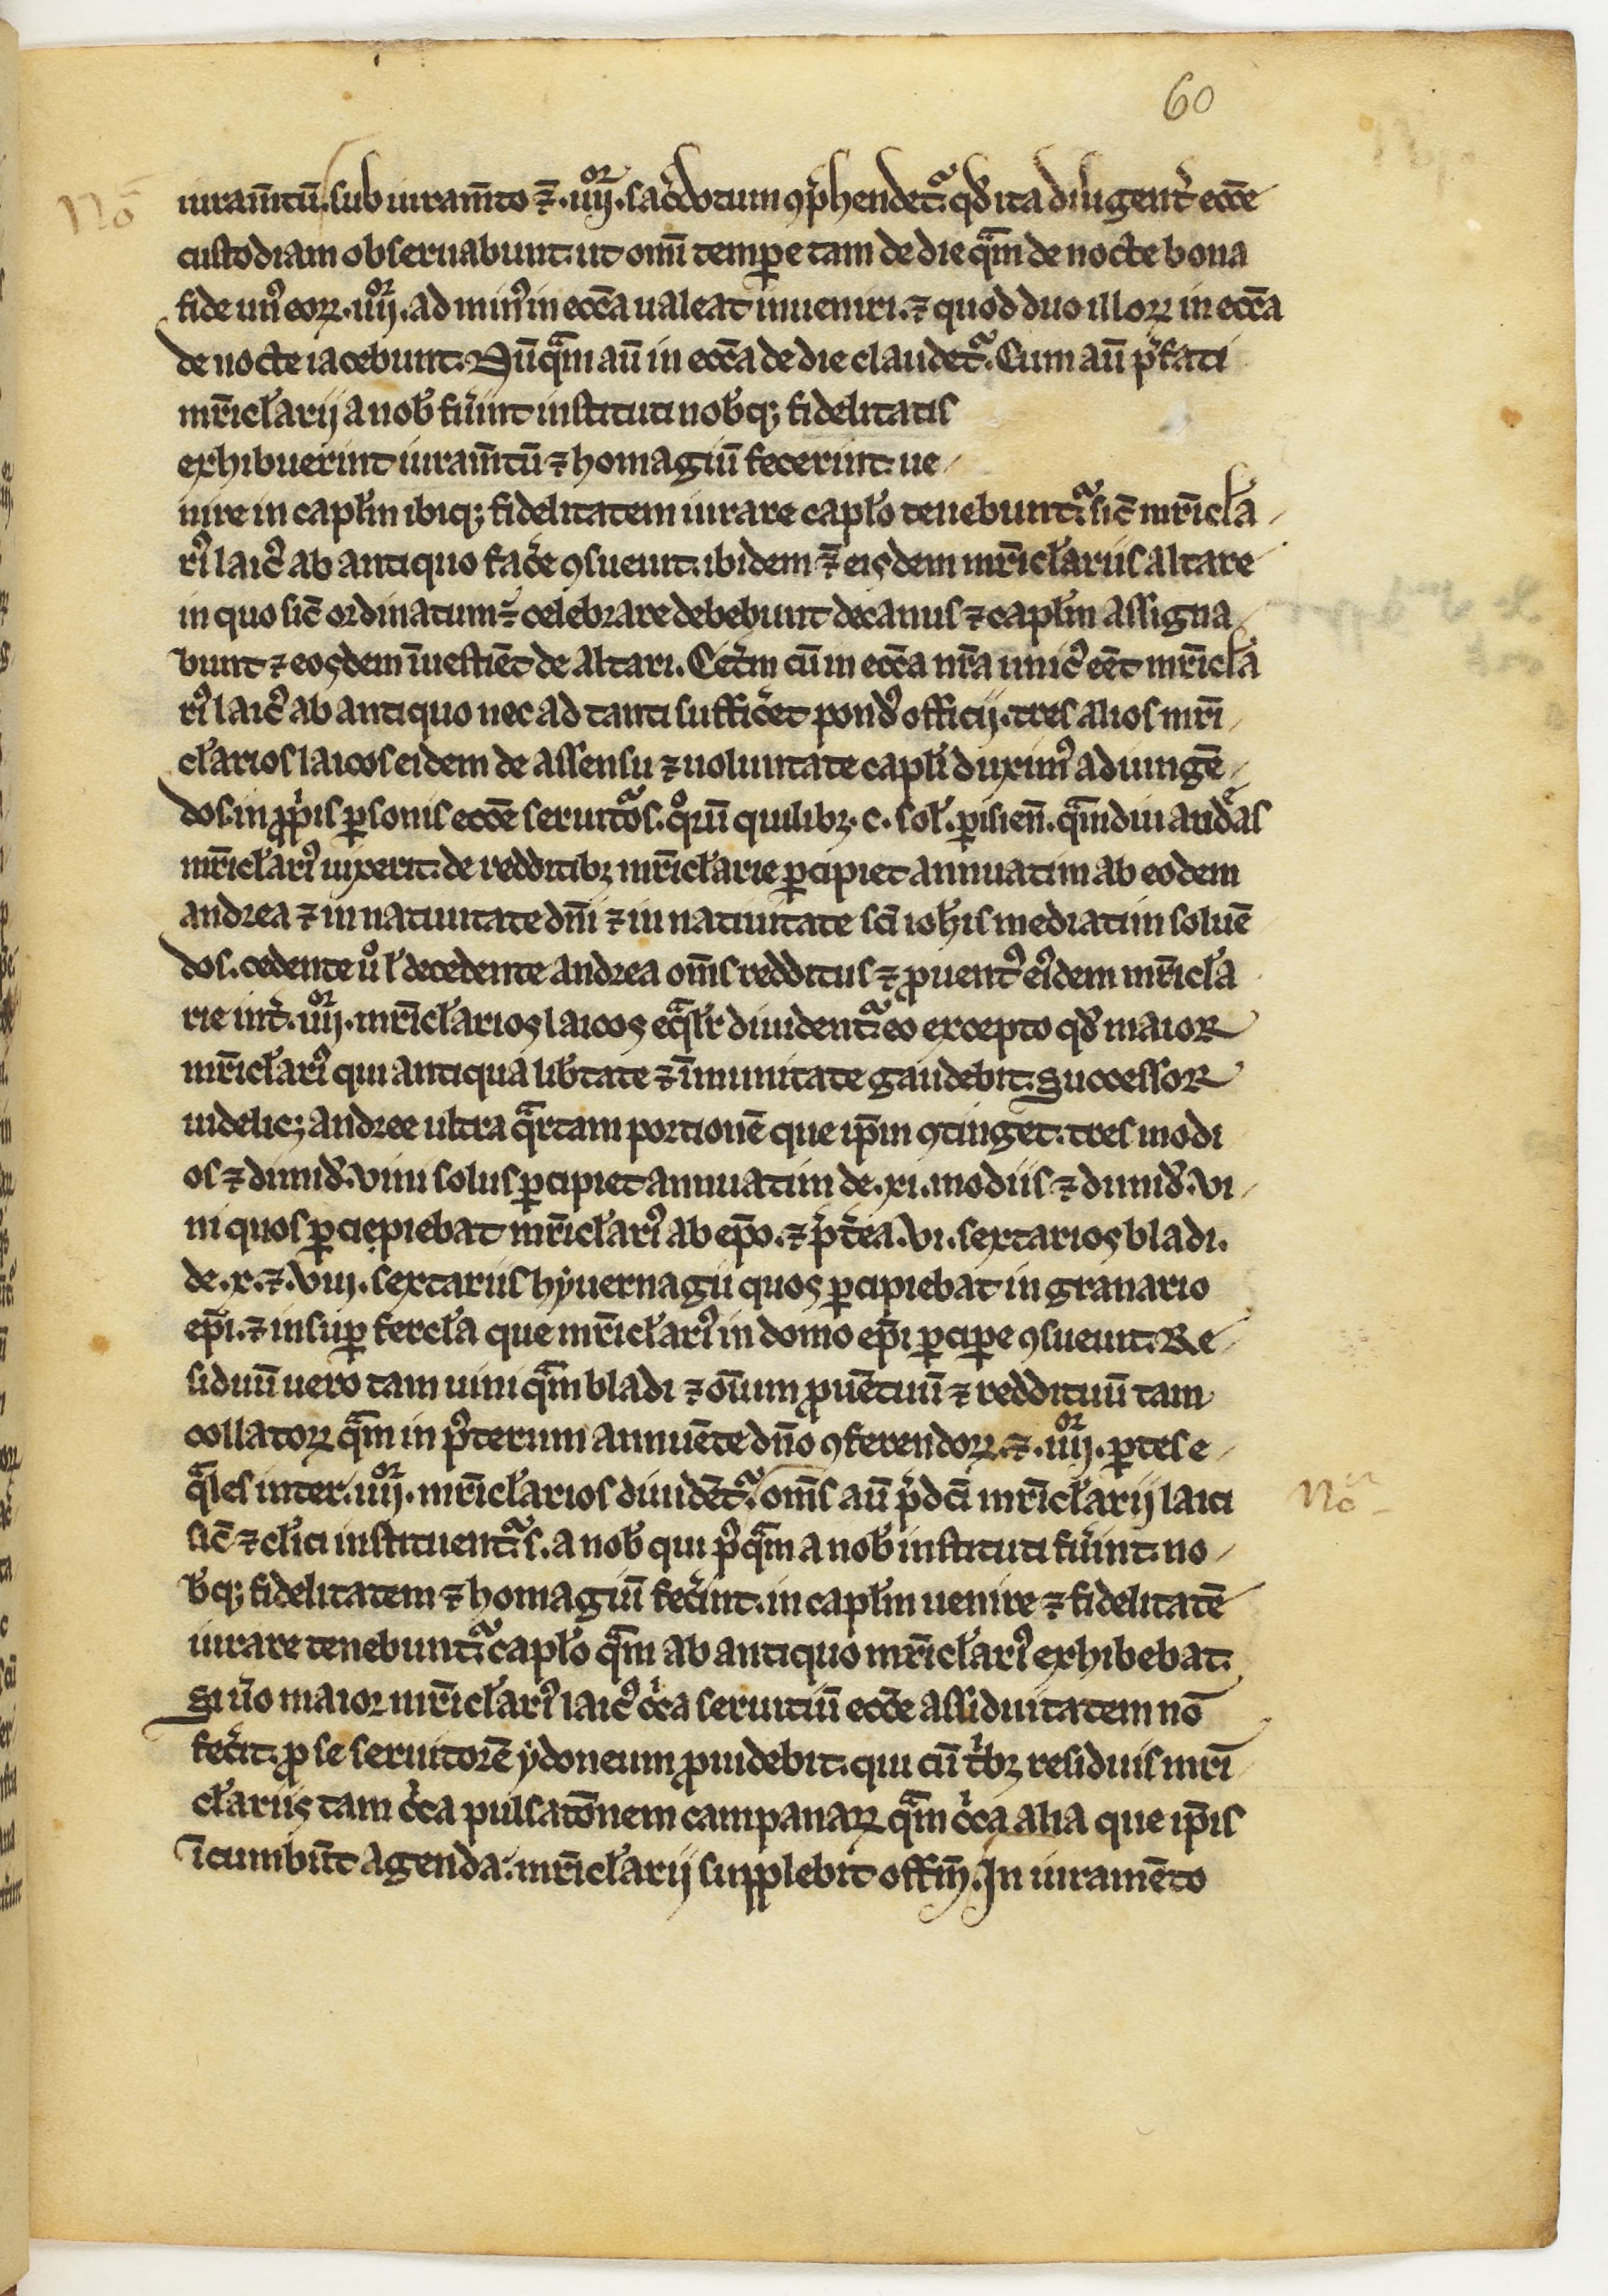 60
No
iuram̄tū. sub iuram̄to ⁊. iiijor. sac̄dotum ꝯp̄hendet᷑. qd̓ ita diligent̓ ecc̄e
custodiam obseruabunt. ut om̄i tempore tam de die qͣm de nocte bona
fide unꝰ eoꝝ. iiijor. ad minꝰ in ecc̄a ualeat inueniri. ⁊ quod duo illoꝝ in ecc̄a
de nocte iacebunt. Nūqͣm aū in ecc̄a de die claudet᷑. Cum aū p̄fati
mr̄icl̓arij a nob̓ fu̓int instituti nob̓qꝫ fidelitatis
exhibuerint iuram̄tū ⁊ homagiū fecerint. ue
nire in capl̓m ibiqꝫ fidelitatem iurare capl̓o tenebunt᷑. sic̄ mr̄icl̓a
rꝰ laicꝰ ab antiquo fac̓e ꝯsueuit. ibidem ⁊ eisdem mr̄icl̓ariis altare
in quo sic̄ ordinatum ÷ celebrare debebunt decanus ⁊ capl̓m assigna
bunt ⁊ eosdem īuestiēt de altari. Cet̓m cū in ecc̄a nr̄a unicꝰ eēt mr̄icl̓a
rꝰ laicꝰ ab antiquo nec ad tanti suffic̓et pondꝰ officij. tres alios mr̄i
cl̓arios laicos eidem de assensu ⁊ uoluntate capl̓i duximꝰ adiungē
dos. in ꝓpͥis ꝑsonis ecc̄e seruitͣos. qͦrū quilibꝫ. c. sol̓. ꝑisien̄. qͣmdiu andre̓as
mr̄icl̓arꝰ uixerit. de redditibꝫ mr̄icl̓arie ꝑcipiet annuatim ab eodem
andrea ⁊ in natiuitate dn̄i ⁊ in natiuitate sc̄i ioh̓is mediatim soluē
dos. cedente uͦ l̓ decedente andrea om̄s redditus ⁊ ꝓuentꝰ eiꝰdem mr̄icl̓a
rie int̓. iiijor. mr̄icl̓arios laicos eqͣl̓r diuident᷑. eo excepto qd̓ maior
mr̄icl̓arꝰ qui antiqua lib̓tate ⁊ īmunitate gaudebit. successor
uidelicꝫ andree ultra qͣrtam portionē que ip̄m ꝯtinget. tres modi
os ⁊ dimid̓. vini solus ꝑcipiet annuatim de. xi. modiis ⁊ dimid̓. vi
ni quos ꝑciepiebat mr̄icl̓arꝰ ab ep̄o. ⁊ p̄t̓ea. vi. sextarios bladi.
de. x. ⁊. viij. sextariis hẏuernagii quos ꝑcipiebat in granario
ep̄i. ⁊ insuꝑ fercl̓a que mr̄icl̓arꝰ in domo ep̄i ꝑciꝑe ꝯsueuit. Re
siduū uero tam uini qͣm bladi ⁊ om̄ium ꝓuētuū ⁊ reddituū tam
collatoꝝ qͣm in pꝰterum annuēte dn̄o ꝯferendoꝝ. ⁊. iiijor. ꝑtes e
qͣles inter. iiijor. mr̄icl̓arios diuidēt᷑. om̄s aū p̄dc̄i mr̄icl̓arij laici
No
sic̄ ⁊ cl̓ici instituent᷑ s. a nob̓ qui pꝰqͣm a nob̓ instituti fu̓int. no
b̓qꝫ fidelitatem ⁊ homagiū fec̓int. in capl̓m uenire ⁊ fidelitatē
iurare tenebunt᷑. capl̓o qͣm ab antiquo mr̄icl̓arꝰ exhibebat.
si u̓o maior mr̄icl̓arꝰ laicꝰ cͥca seruitiū ecc̄e assiduitatem nō
fec̓it. ꝓ se seruitorē ẏdoneum ꝓuidebit. qui cū tͥbꝫ residuis mr̄i
cl̓ariis tam cͥca pulsatōnem campanaꝝ qͣm cͥca alia que ip̄is
īcumbūt agenda. mr̄icl̓arij supplebit offm̄. In iuramēto